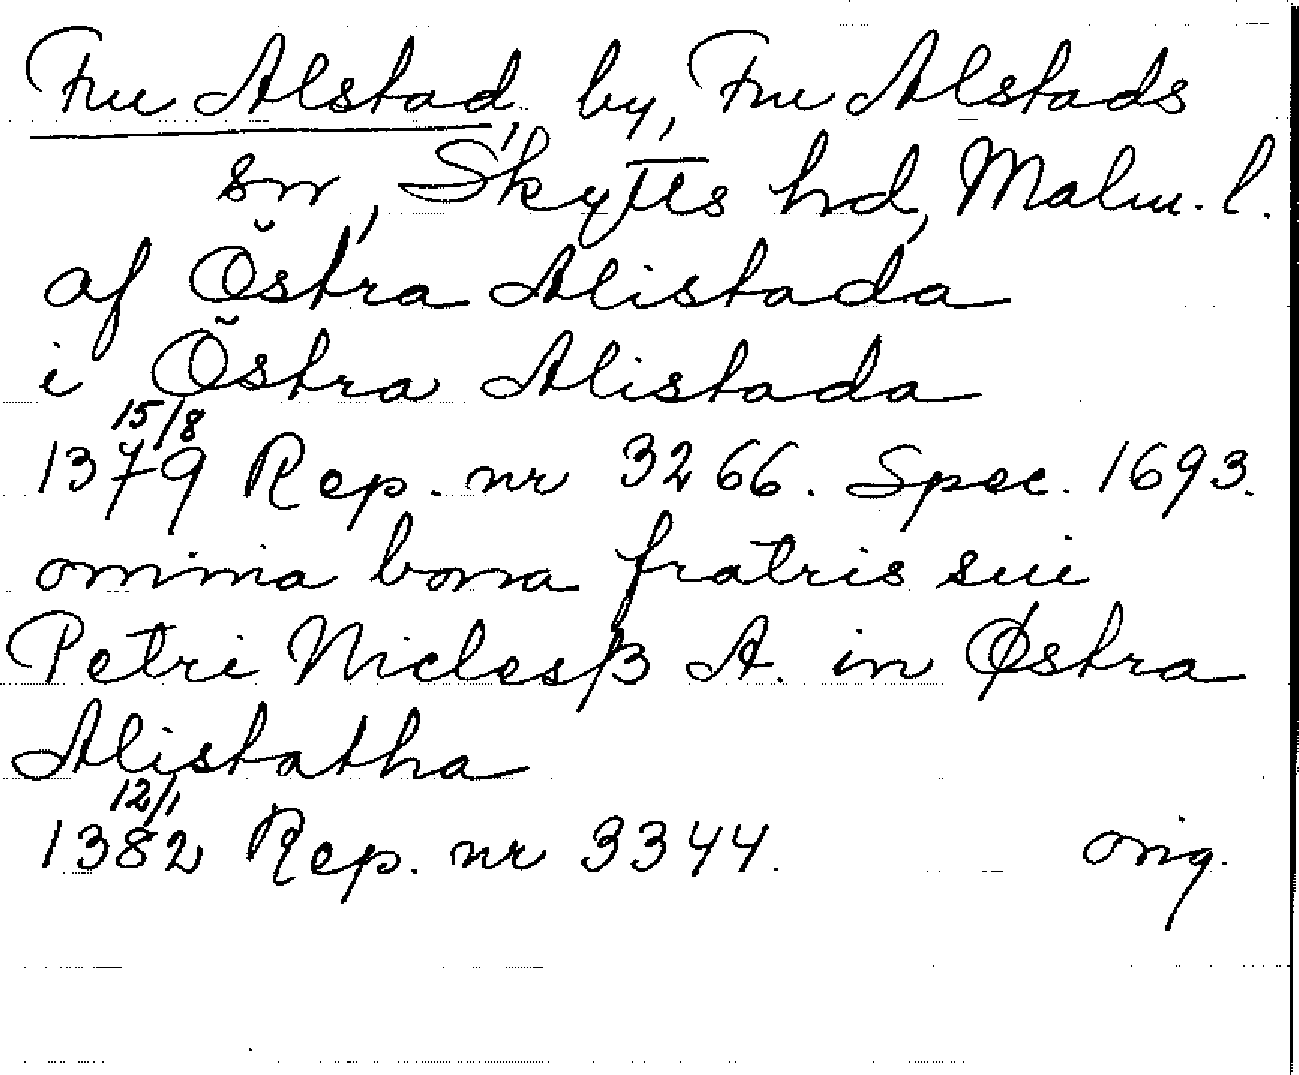 Fru Alstad, by, Fru Alstads
sn, Skytts hd, Malm. l.
af Östra Alistada
i Östra Alistada
15/8
1379 Rep. nr 3266. Spec. 1693.
omnia bona fratris sui
Petri Niclesß A. in Østra
Alistatha
12/1
1382 Rep. nr 3344. orig.